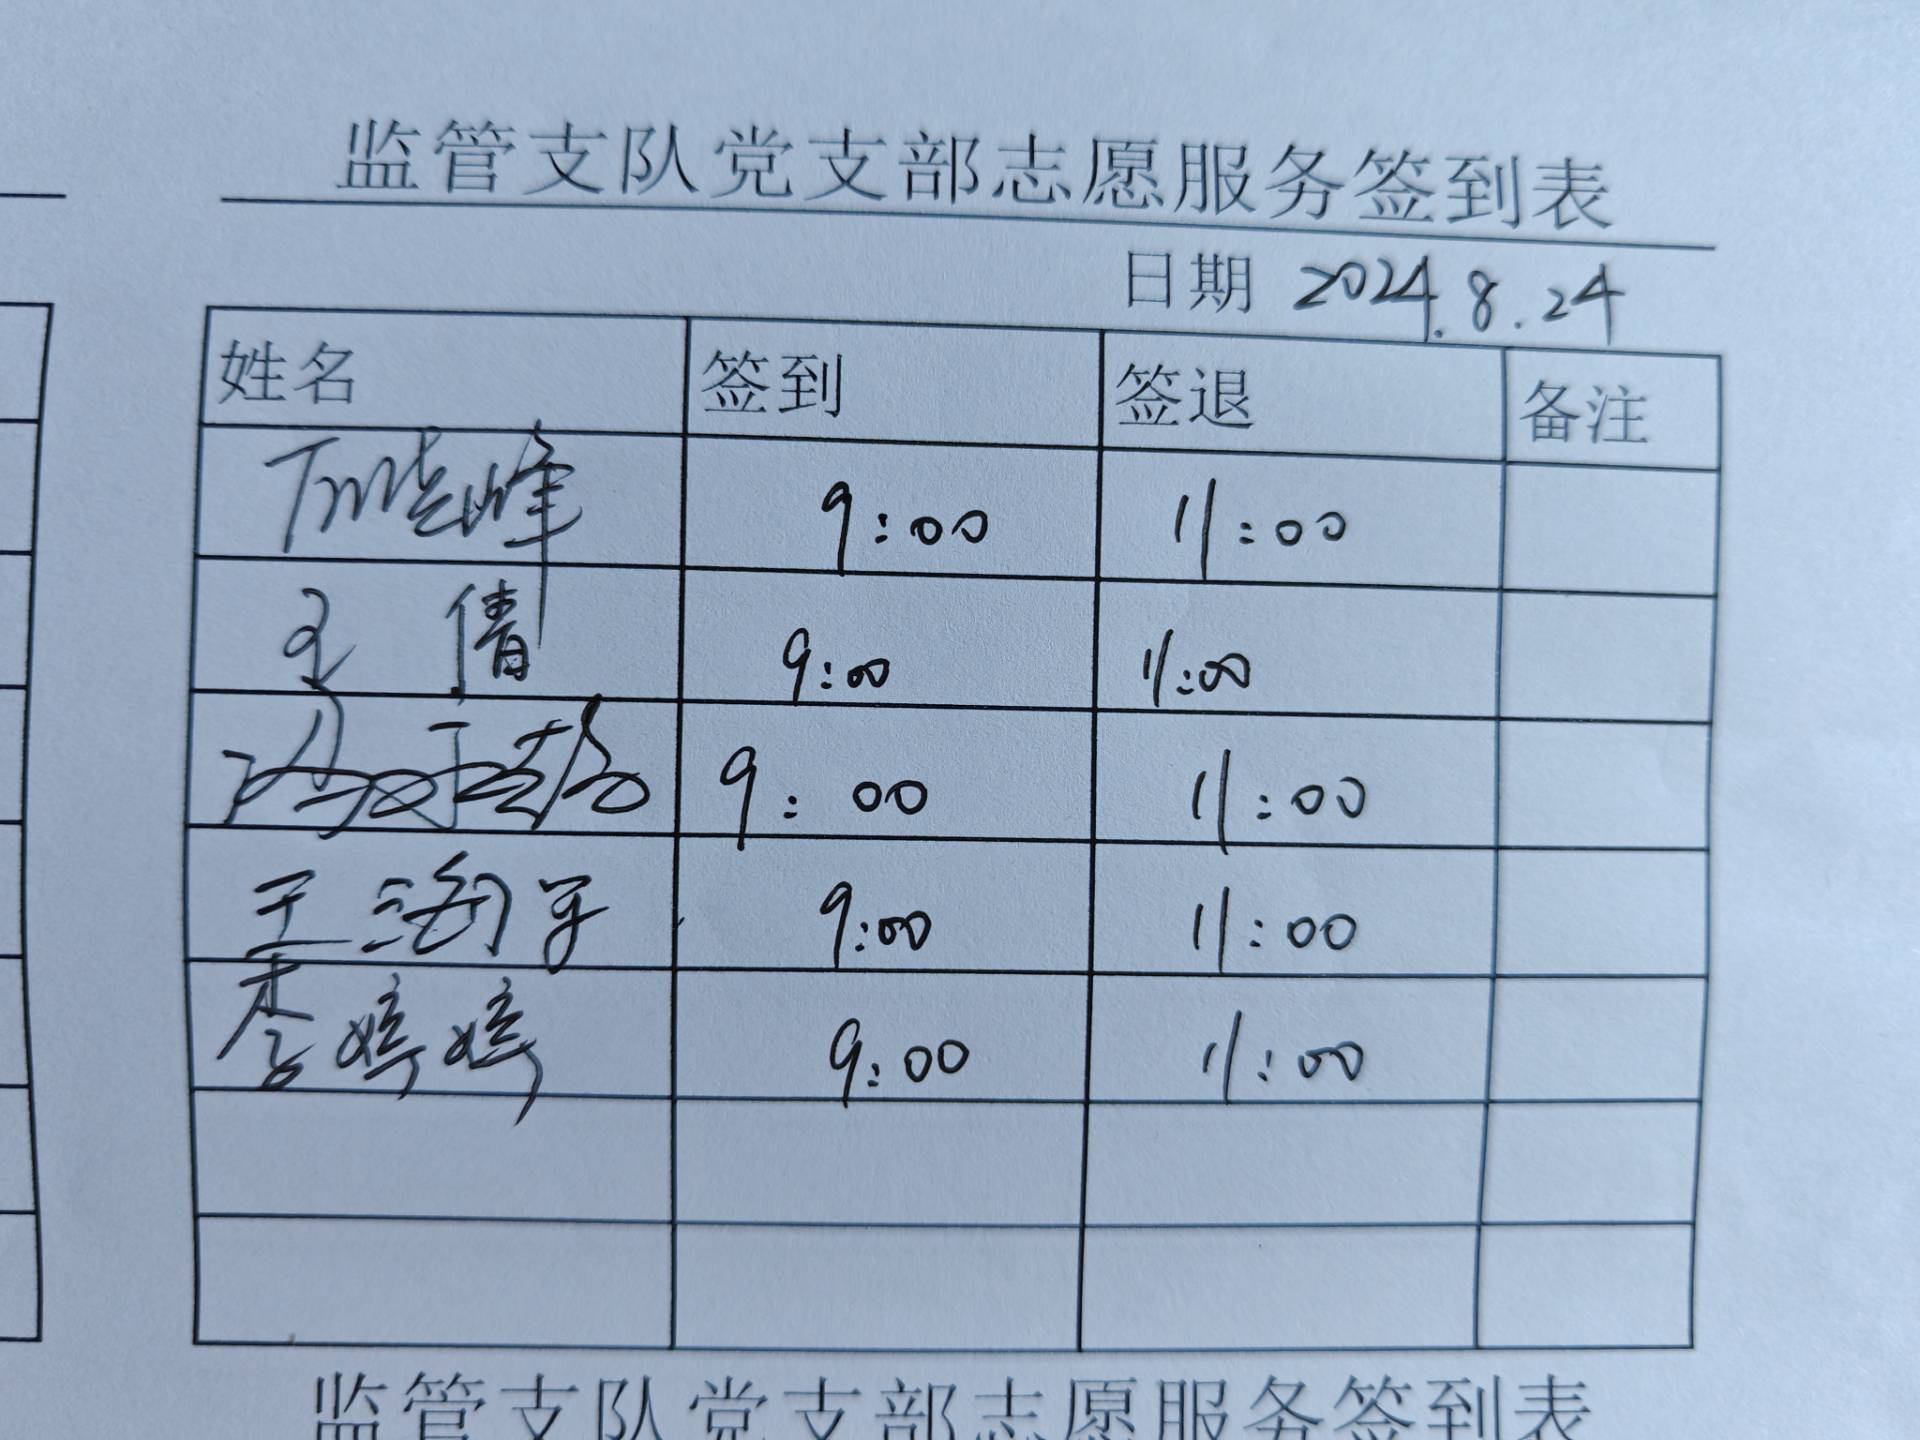 监管支队党支部志愿服务签到表
日期 2024.8.24
姓名 签到 签退 备注
晓峰 9:00 11:00
王倩 9:00 11:00
9:00 11:00
王 9:00 11:00
李婷婷 9:00 11:00
监管支队党支部志愿服务签到表